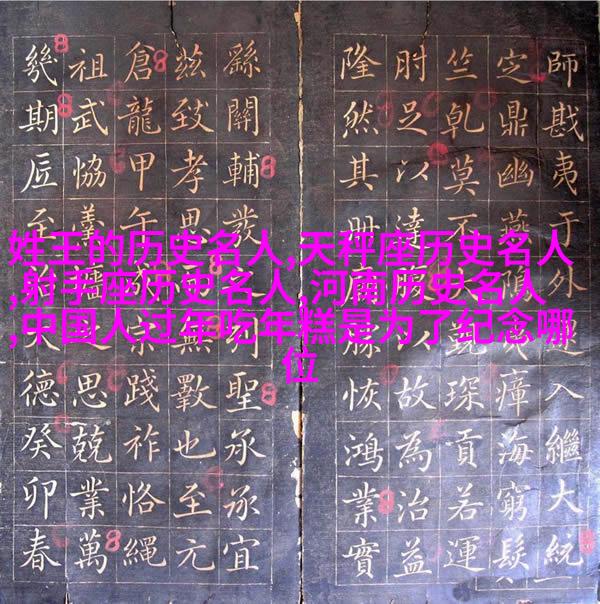 姓王的历史名人,天秤座历史名人
,射手座历史名人,河南历史名人
,中国人过年吃年糕是为了纪念哪
位
師戡夷于外入繼大統
定鼎幽燕瘴海窮髮
竺乾莫不琛貢若運
肘足以達以故為治益
隆然其恢鴻業實
繇關輔發列聖承承宜
茲致孝思無斁也至元
倉龍甲午宗踐祚恪繩
祖武協思兢業萬
幾期底至大德癸卯春